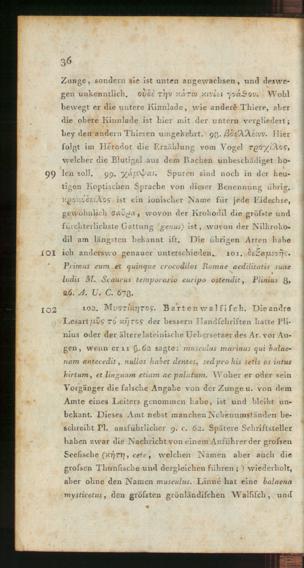 36
Zunge, sondern sie ist unten angewachsen, und deswe-
gen unkenntlich. οὐδὲ τὴν κάτω κινέει γνάθον. Wohl
bewegt er die untere Kinnlade, wie andere Thiere, aber
die obere Kinnlade ist hier mit der untern vergliedert;
bey den andern Thieren umgekehrt. 98. βδελλέων. Hier
folgt im Herodot die Erzählung vom Vogel τροχίλος,
welcher die Blutigel aus dem Rachen unbeschädiget ho-
99 len soll. 99. χάμψαι. Spuren sind noch in der heu-
tigen Koptischen Sprache von dieser Benennung übrig.
κροκόδειλος ist ein ionischer Name für jede Eidechse,
gewöhnlich σαύρα, wovon der Krokodil die größte und
fürchterlichste Gattung (genus) ist, wovon der Nilkroko-
dil am längsten bekannt ist. Die übrigen Arten habe
101 ich anderswo genauer unterschieden. 101.
Primus eum et quinque crocodilos Romae aedilitatis suae
ludis M. Scaurus temporario euripo ostendit, Plinius 8,
26. A. U. C. 678.
102 102. Μυστίκητος. Bartenwallfisch. Die andre
Lesart μῦς τὸ κῆτος der bessern Handschriften hatte Pli-
nius oder der ältere lateinische Uebersetzer des Ar. vor Au-
gen, wenn er 11 §. 62 sagte: musculus marinus qui balae-
nam antecedit, nullos habet dentes, sed pro his setis os intus
hirtum, et linguam etiam ac palatum. Woher er oder sein
Vorgänger die falsche Angabe von der Zunge u. von dem
Amte eines Leiters genommen habe, ist und bleibt un-
bekant. Dieses Amt nebst manchen Nebenumständen be-
schreibt Pl. ausführlicher 9. c. 62. Spätere Schriftsteller
haben zwar die Nachricht von einem Anführer der grossen
Seefische (κήτη, cete, welchen Namen aber auch die
grossen Thunfische und dergleichen führen;) wiederholt,
aber ohne den Namen musculus. Linné hat eine balaena
mysticetus, den größten grönländischen Wallfisch, und